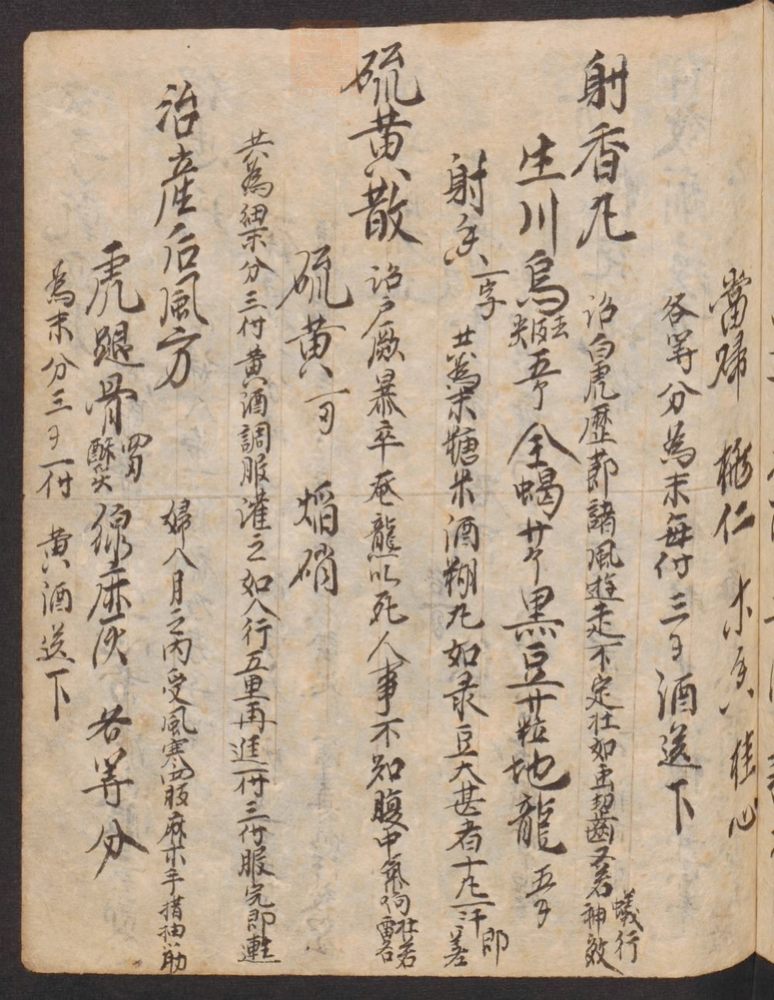 當歸 桃仁 木香 桂心
各等分為末每付三錢酒送下
射香丸 治白虎歷節諸風遊走不定壯如虫囓又若蟻行神效
生川烏 全蝎廿个黑豆廿粒地龍五錢
射香一字 共為末糖米酒糊丸如彔豆大甚者十丸一汗即差
硫黄散 治尸厥暴卒奄龍似死人事不知腹中氣狗壯若雷名
硫黄一両 焰硝
共為細末分三付黄酒調服灌之如人行五里再進一付三付服完即
治産后風方 婦人月之內受風寒四肢麻木手搐抽筋
虎腿骨 酥炙 線麻灰 各等分
為末分三錢一付 黄酒送下